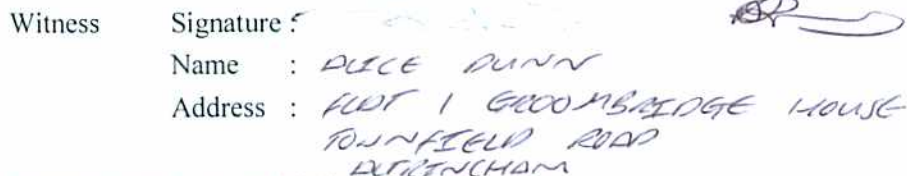 Witness Signature :
Name : ALICE DUNN
Address : FLAT 1 GROOMBRIDGE HOUSE
TOWNFIELD ROAD
ALTRINCHAM